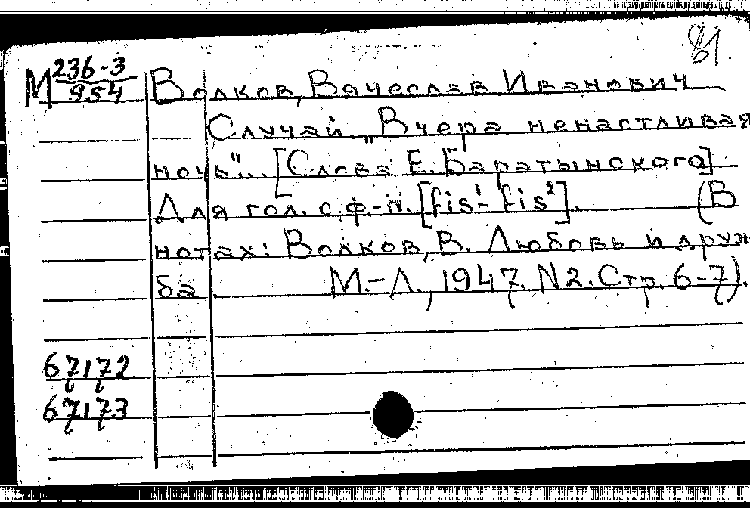 81.
М 236-3
954
Волков, Вячеслав Иванович
Случай „Вчера ненастливая
ночь"... [Слова Е. Баратынского].
Для гол. с ф-п. [fis¹- fis²]. (В
нотах: Волков, В. Любовь и друж
ба М.-Л., 1947. N2. Стр. 6-7).
67172
67173